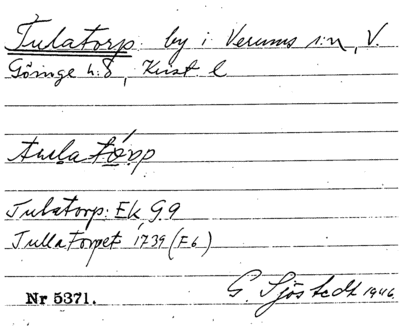 Tulatorp. by i Verums s:n, V.
Göinge h:d, Krist. l
tulatórp
Tulatorp: Ek G9
Tullatorpet 1739 (E6)
Nr 5371. G. Sjöstedt 1946.